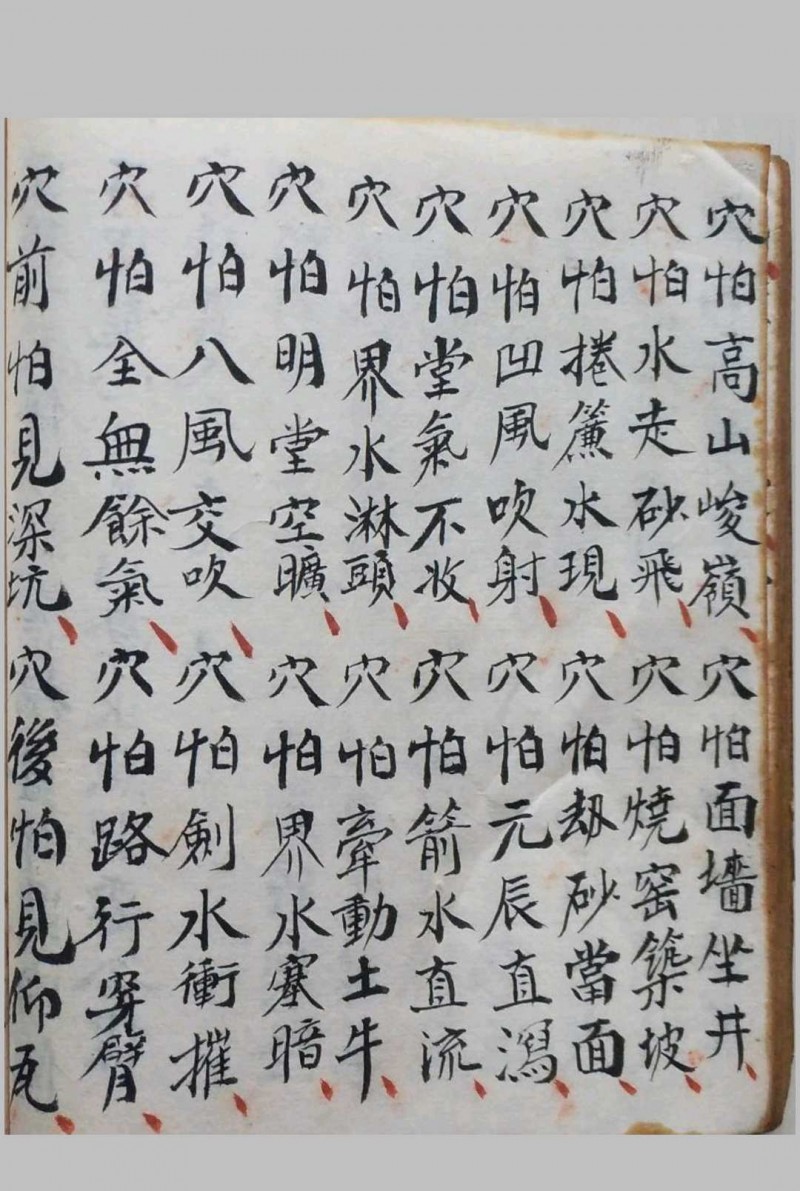 穴怕高山峻嶺穴怕面墻坐井
穴怕水走砂飛穴怕燒窑築坡
穴怕捲簾水現穴怕劫砂當面
穴怕凹風吹射穴怕元辰直瀉
穴怕堂氣不收穴怕箭水直流
穴怕界水淋頭穴怕牽動土牛
穴怕明堂空曠穴怕界水塞暗
穴怕八風交吹穴怕劍水衝摧
穴怕全無餘氣穴怕路行穿臂
穴前怕見深坑穴後怕見仰瓦